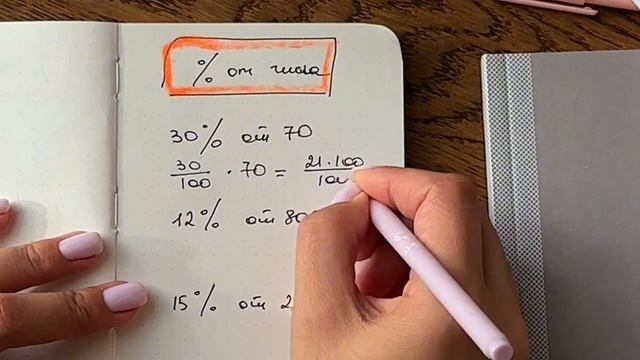 % от числа
30% от 70
30/100 · 70 = 21·100/100
12% от 80
15% от 2